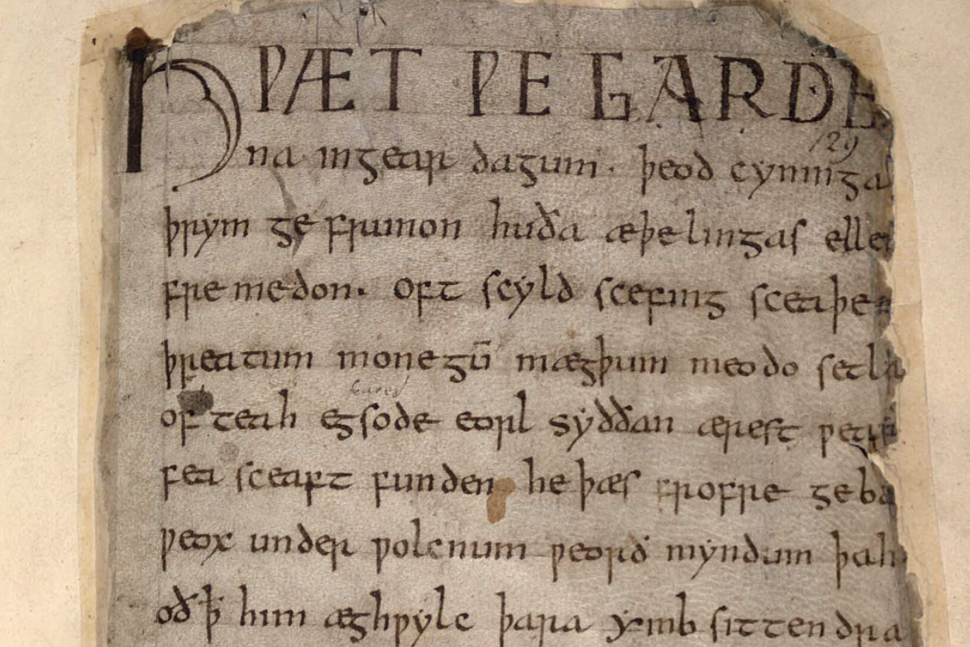 HǷÆT ǷE GARDE
na in gear dagum. þeod cyninga
þrym ge frunon huða æþelingas elle
fre medon. oft scyld scefing sceaþe
þreatum monegū mægþum meodo setla
of teah egsode eorl syððan ærest ƿear
fea sceaft funden he þæs frofre geba
ƿeox under ƿolcnum ƿeorð myndum þah
oð ꝥ him æghƿylc þara ymb sittendra